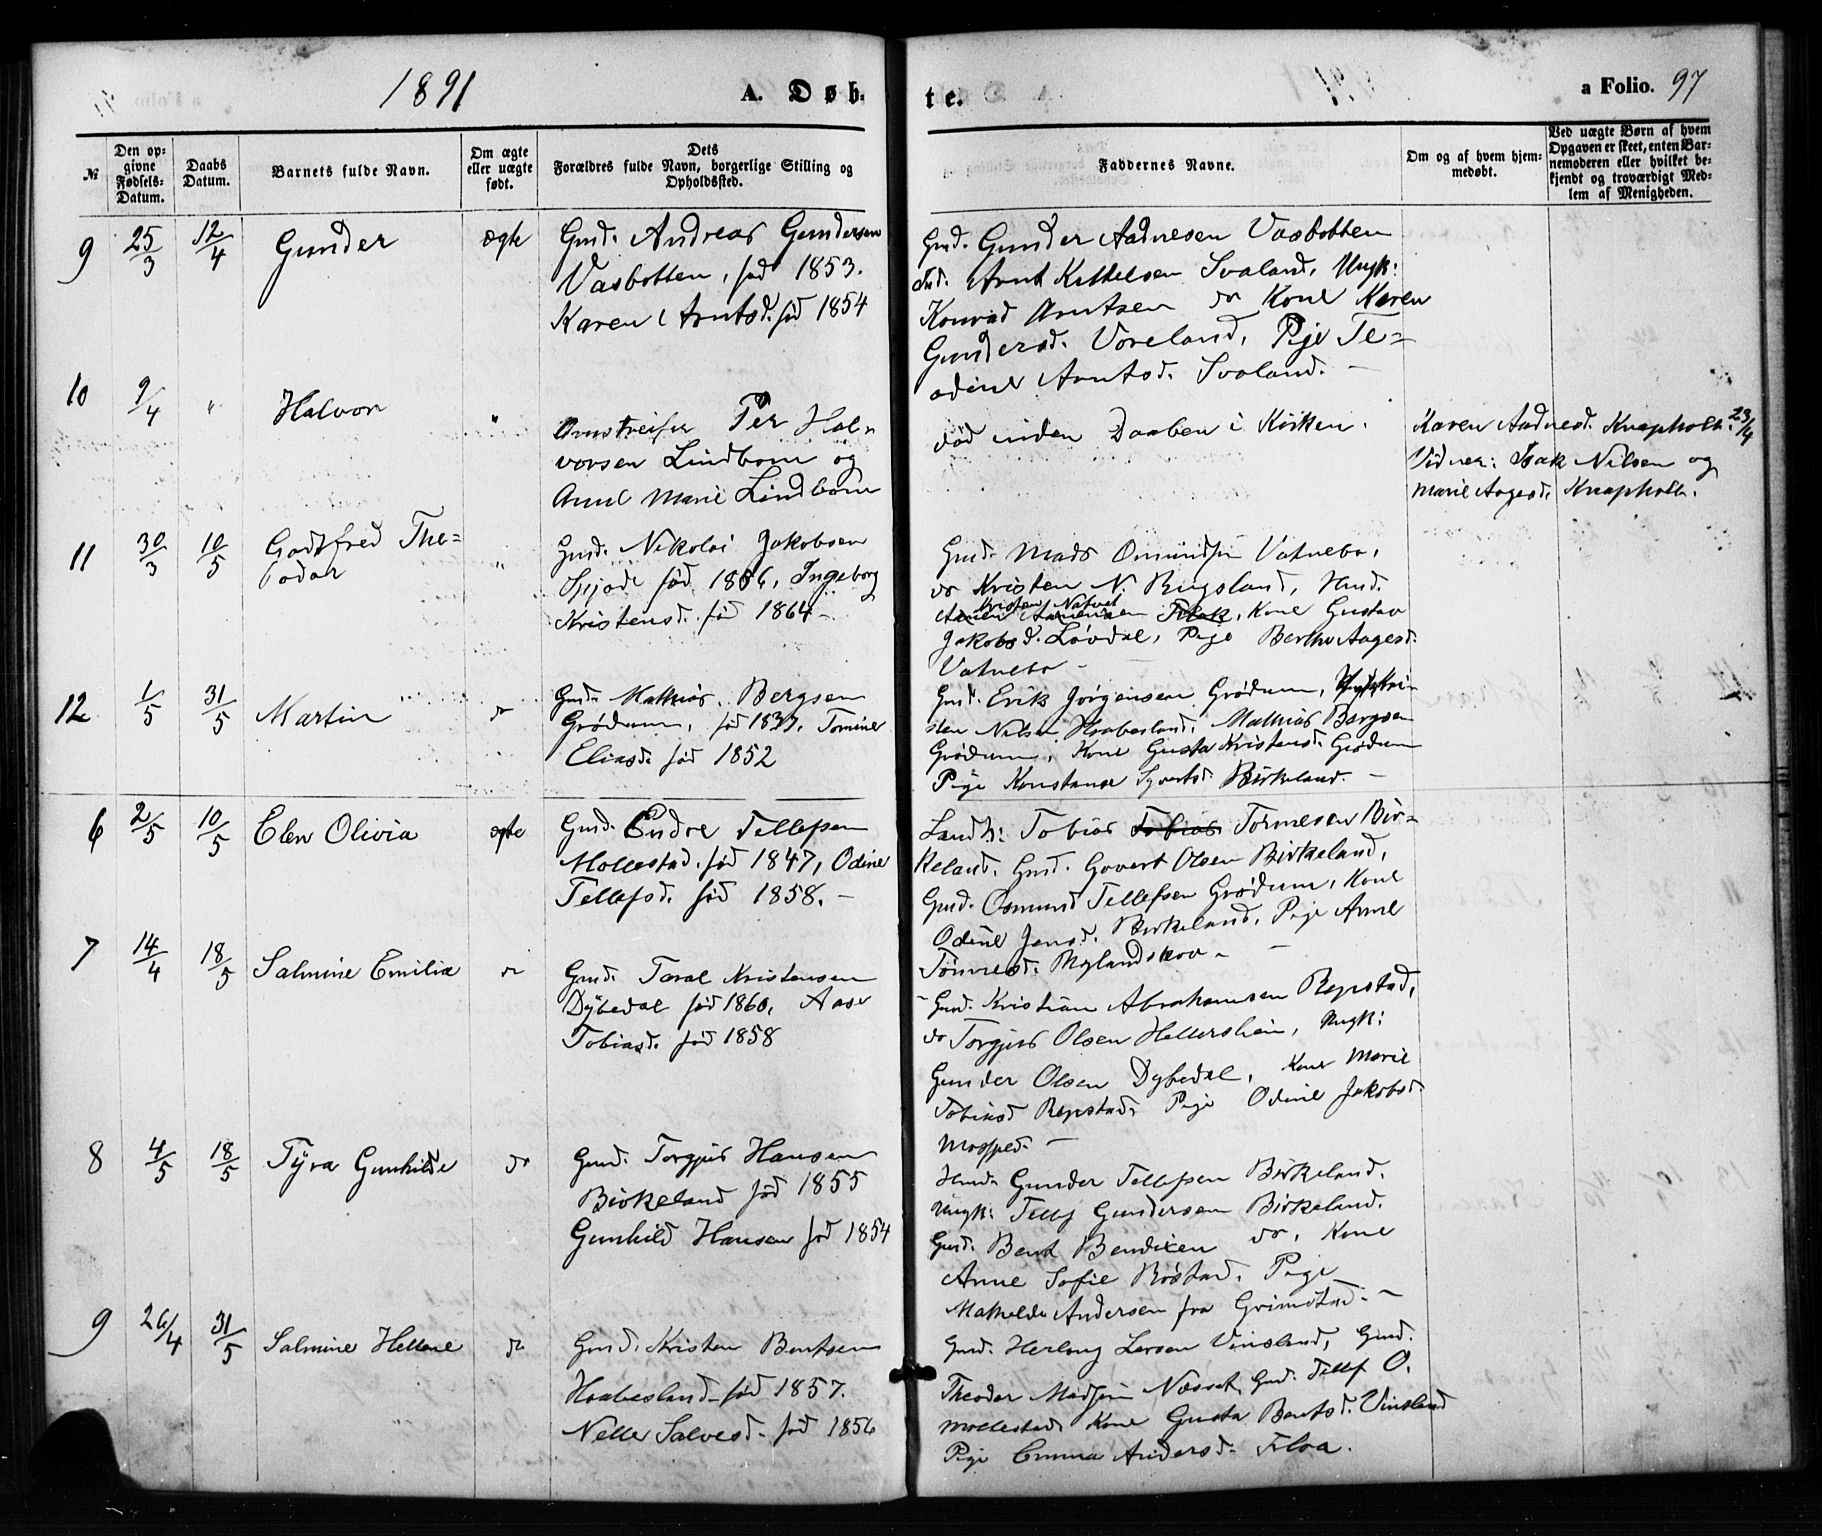 1891
A. Døb-
te.
a Folio. 97
№
Den op-
givne
Fødsels-
Datum.
Daabs
Datum.
Barnets fulde Navn.
Om ægte
eller uægte
født.
Dets
Forældres fulde Navn, borgerlige Stilling og
Opholdssted.
Faddernes Navne.
Om og af hvem hjem-
medøbt.
Ved uægte Børn af hvem
Opgaven er skeet, enten Bar-
nemoderen eller hvilket be-
kjendt og troværdigt Med-
lem af Menigheden.
9 25/3 12/4 Gunder ægte
Gmd. Andreas Gundersen
Vasbotten, fød 1853.
Karen Arntsd. fød 1854
Gmd. Gunder Aadnesen Vasbotten
Arnt Kittelsen Svaland, Ungk:
Konrad Arntsen do Kone Karen
Gundersd. Voreland, Pige Te=
odine Arntsd. Svaland. -
10 9/4 " Halvor "
Omstreifer Per Hal-
vorsen Lindbom og
Anne Marie Lindbom
død inden Daaben i Kirken.
Karen Aadnesd. Knapholt. 23/4
Vidner: Isak Nilsen og
Marie Aagesd. Knapholt.
11 30/3 10/5 Godtfred The=
odor "
Gmd. Nikolai Jakobsen
fød 1866, Ingeborg
Kristensd. fød 1864 -
Gmd. Mads Omundsen Vatnebo,
do Kristen N. Bugsland,
Kristen Natvet
Kone Gustav
Jakobsd. Løvdal, Pige Berthe Aagesd.
Vatnebo -
12 1/5 31/5 Martin do
Gmd. Mathias Bergsen
Grødum, fød 1837, Tomine
Eliasd. fød 1852
Gmd. Erik Jørgensen Grødum, Ungk Kri-
sten Nilsen Haabesland, Mathias Bergsen
Grødum, Kone Gusta Kristensd. Grødum
Pige Konstanse Syvertsd. Birkeland. -
6 2/5 10/5 Elen Olivia ægte
Gmd. Endre Tellefsen
Mollestad, fød 1847, Odine
Tellefsd. fød 1858. -
Landh: Tobias Tobias Tønnesen Bir-
keland, Gmd. Govert Olsen Birkeland,
Gmd. Osmund Tellefsen Grødum, Kone
Odine Jensd. Birkeland, Pige Anne
Tønnesd. Myglandskov -
7 14/4 18/5 Salmine Emilie do
Gmd. Taral Kristensen
Dybedal fød 1860, Aase
Tobiasd. fød 1858
Gmd. Kristian Abrahamsen Repstad,
do Torgius Olsen Hellershien, Ungk:
Gunder Olsen Dybedal, Kone Marie
Tobiasd Repstad, Pige Odine Jakobsd
Mosfjed. -
8 4/5 18/5 Tyra Gunhilde do
Gmd. Torgius Hansen
Birkeland fød 1855
Gunhild Hansen fød 1854
Hmd. Gunder Tellefsen Birkeland.
Ungk: Tellef Gundersen Birkeland.
Gmd. Bent Bendixen do, Kone
Anne Sofie Røstad, Pige
Mathilde Andersen fra Grimstad. -
9 26/4 31/5 Salmine Hellene do
Gmd. Kristen Bentsen
Haabesland fød 1857.
Nelle Salvesd. fød 1856
Gmd. Herlong Larsen Vinsland, Gmd.
Theodor Madsen Næsset, Gmd. Tellef O.
Mollestad, Kone Gusta Bentsd. Vinsland
Pige Emma Andersd. Flaa.